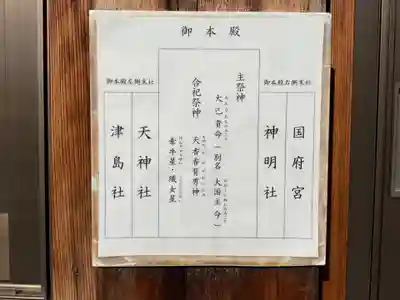 御本殿
御本殿右側末社
国府宮
神明社
主祭神
大己貴命(別名 大国主命)
合祀祭神
天香香背男神
牽牛星・織女星
御本殿左側末社
天神社
津島社